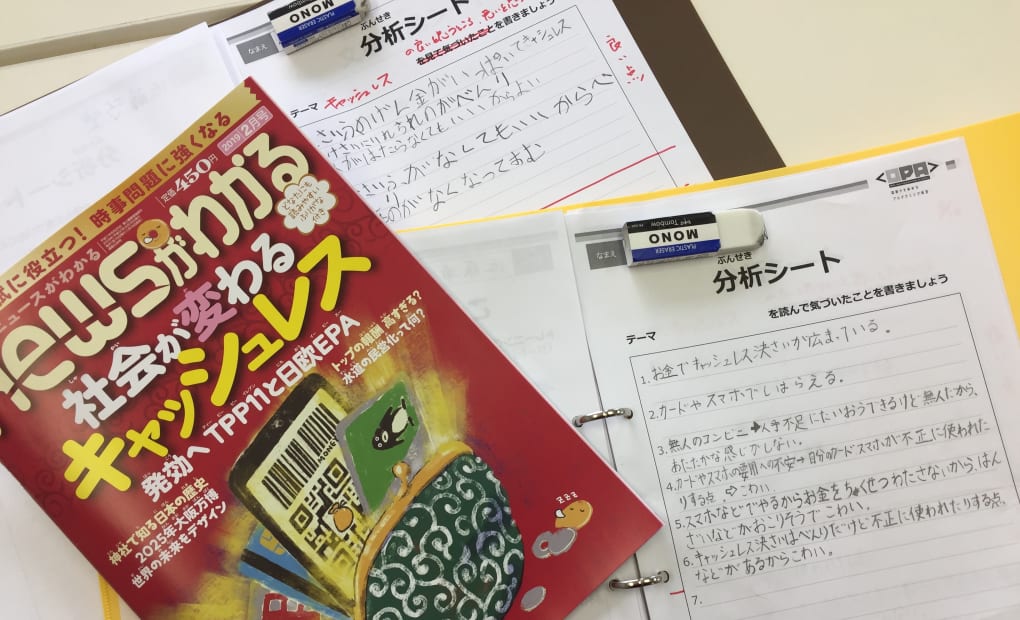 ぶんせき
分析シート
なまえ
を見て気づいたことを書きましょう
良い点
テーマ キャッシュレス
PLASTIC ERASER
MONO
Tombow
試に役立つ! 時事問題に強くなる
ニュースがわかる
定価450円
2019 2月号
newsがわかる
どなたにも
読みやすい
ふりがな
付き
社会が変わる
キャッシュレス
発効へTPP11と日欧EPA
トップの報酬 高すぎる?
水道の民営化って何?
神社で知る日本の歴史
2025年大阪万博
世界の未来をデザイン
MONEY
zzz
PLASTIC ERASER
MONO
Tombow
なまえ
ぶんせき
分析シート
を読んで気づいたことを書きましょう
テーマ
1. お金でキャッシュレス決さいが広まっている。
2. カードやスマホでしはらえる。
3. 無人のコンビニ→人手不足にたいおうできるけど無人だから、
あたたかな感じがしない。
4. カードやスマホの悪用への不安→自分のカードスマホが不正に使われた
りする点。⇒こわい
5. スマホなどでやるからお金をちょくせつわたさないから、はん
ざいなどがおこりそうでこわい。
6. キャッシュレス決さいはべんりだけど不正に使われたりする点
などがあるからこわい。
7.